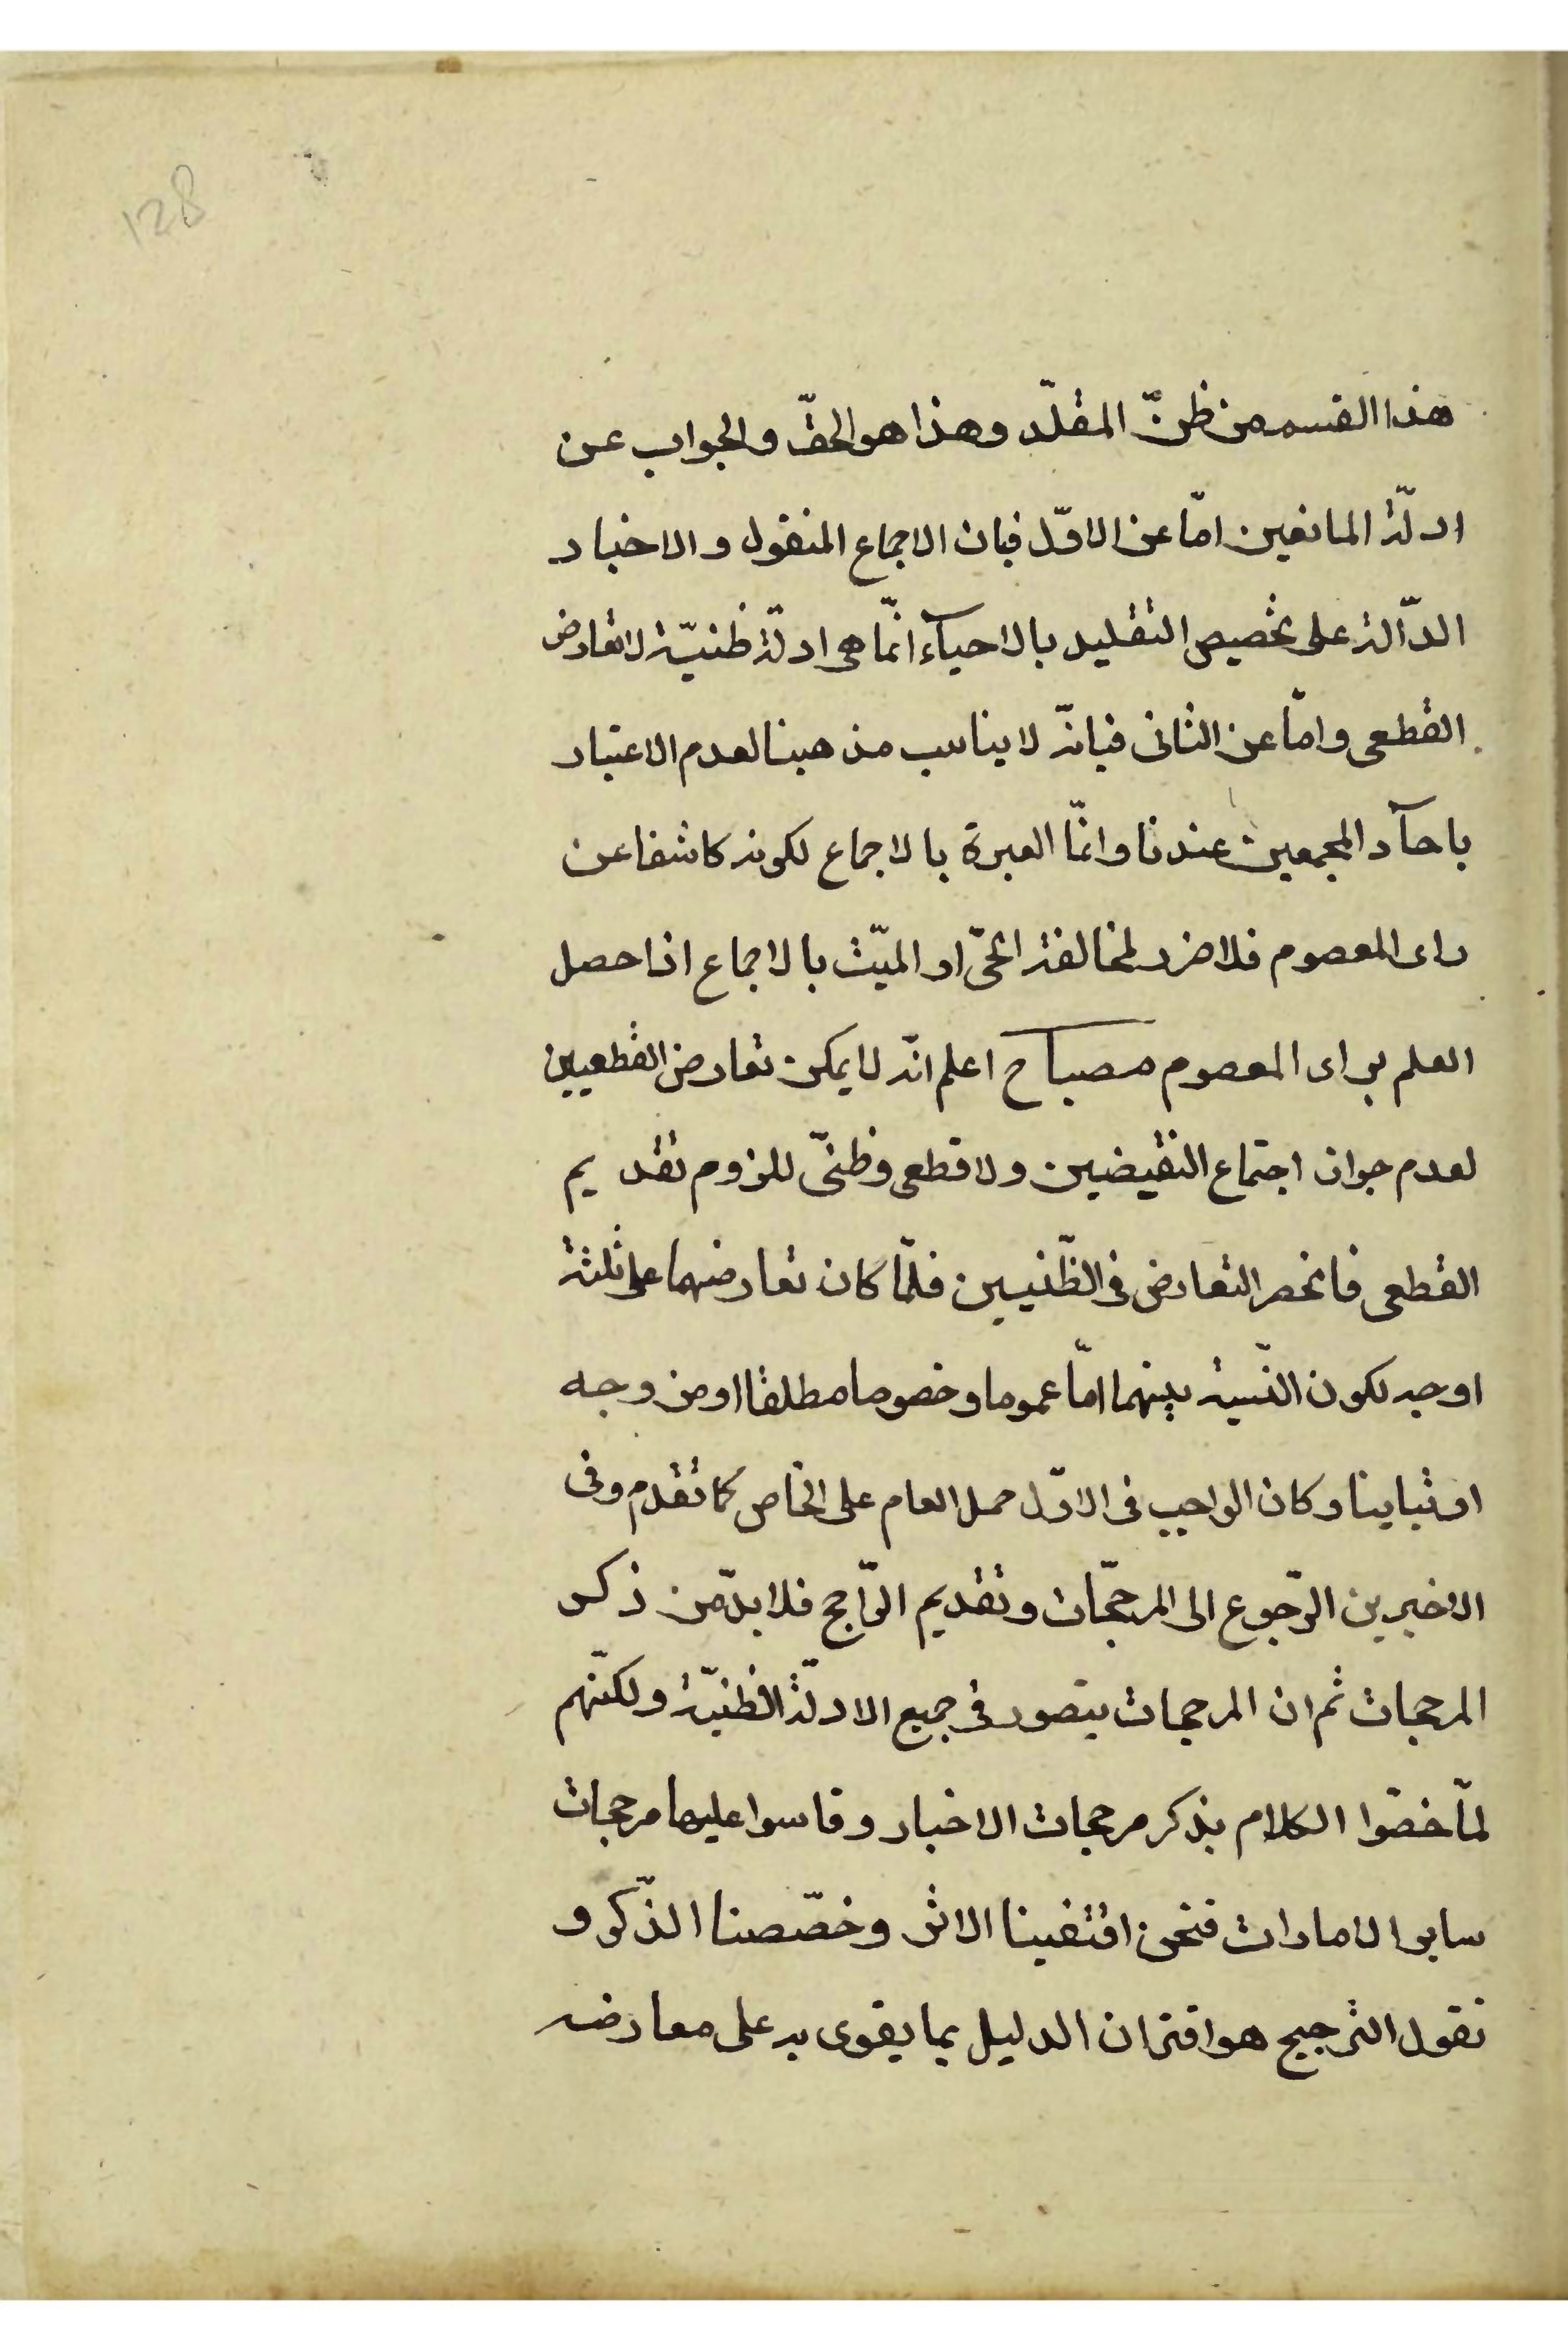 128
هذا القسم من ظنّ المقلّد وهذا هو الحقّ والجواب عن
ادلّة المانعين امّا عن الاوّل فبان الاجماع المنقول والاخبار
الدّالة على تخصيص التقليد بالاحيآء انّما هى ادلّة ظنيّة لا تعارض
القطعى وامّا عن الثانى فبانّه لا يناسب مذهبنا لعدم الاعتبار
باحآد المجمعين عندنا وانّما العبرة بالاجماع لكونه كاشفا عن
راى المعصوم فلا ضرر لمخالفة الحىّ او الميّت بالاجماع اذا حصل
العلم براى المعصوم مصباح اعلم انّه لا يمكن تعارض القطعيين
لعدم جواز اجتماع النقيضين ولا قطعى وظنّى للزوم تقديم
القطعى فانحصر التعارض فى الظّنيين فلمّا كان تعارضهما على ثلثة
اوجه لكون النّسبة بينهما امّا عموما وخصوصا مطلقا او من وجه
او تباينا وكان الواجب فى الاوّل حمل العام على الخاص كما تقدم وفى
الاخيرين الرّجوع الى المرجّحات وتقديم الرّاجح فلا بدّ من ذكر
المرجحات ثم ان المرجحات يتصور فى جميع الادلّة الظنيّة ولكنّهم
لمّا خصّوا الكلام بذكر مرجحات الاخبار وقاسوا عليها مرجحات
ساير الامارات فنحن اقتفينا الاثر وخصّصنا الذّكر و
نقول الترجيح هو اقتران الدليل بما يقوى به على معارضه